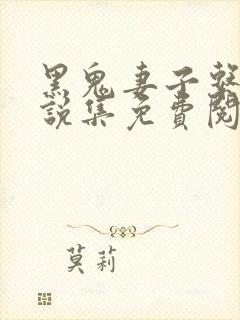 黑鬼妻子
說集免費閱
莫莉